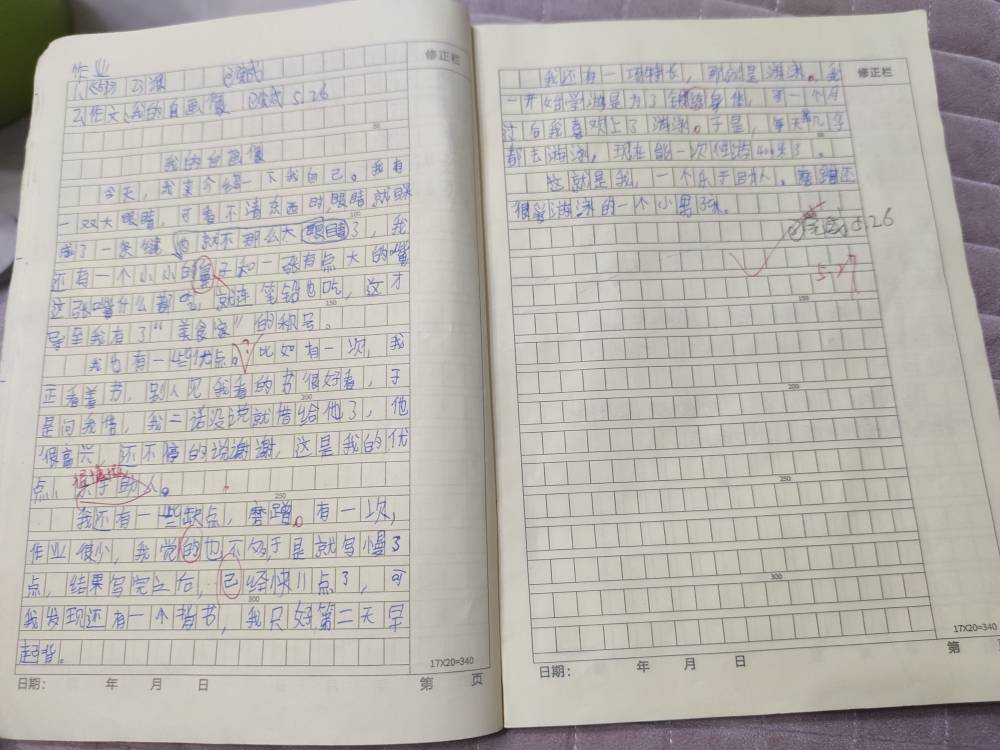 作业
2.作文《我的自画像》 5.26
我的自画像
今天,我来介绍一下我自己。我有
一双大眼睛,可看不清东西时眼睛就眯
成了一条缝,也就不那么大眼睛了,我
还有一个小小的鼻子和一张有点大的嘴
这张嘴什么都吃,就连笔铅也吃,这才
导至我有了“美食家”的称号。
我也有一些优点。比如有一次,我
正看着书,别人见我看的书很好看,于
是问我借,我二话没说就借给他了,他
很高兴,还不停的说谢谢,这是我的优
点,乐于助人。
我还有一些缺点,磨蹭。有一次,
作业很少,我觉的也不多于是就写慢了
点,结果写完之后,已经快11点了,可
我发现还有一个背书,我只好第二天早
起背。
日期: 年 月 日 第 页
17X20=340
修正栏
我还有一项特长,那就是游泳。我
一开始学游是为了锻练身体,可一个月
过后我喜欢上了游泳。于是,每天第几
都去游泳,现在能一次性游400米了。
这就是我,一个乐于助人。磨蹭还
很爱游泳的一个小男孩。
5.26
5.27
修正栏
17X20=340
日期: 年 月 日 第